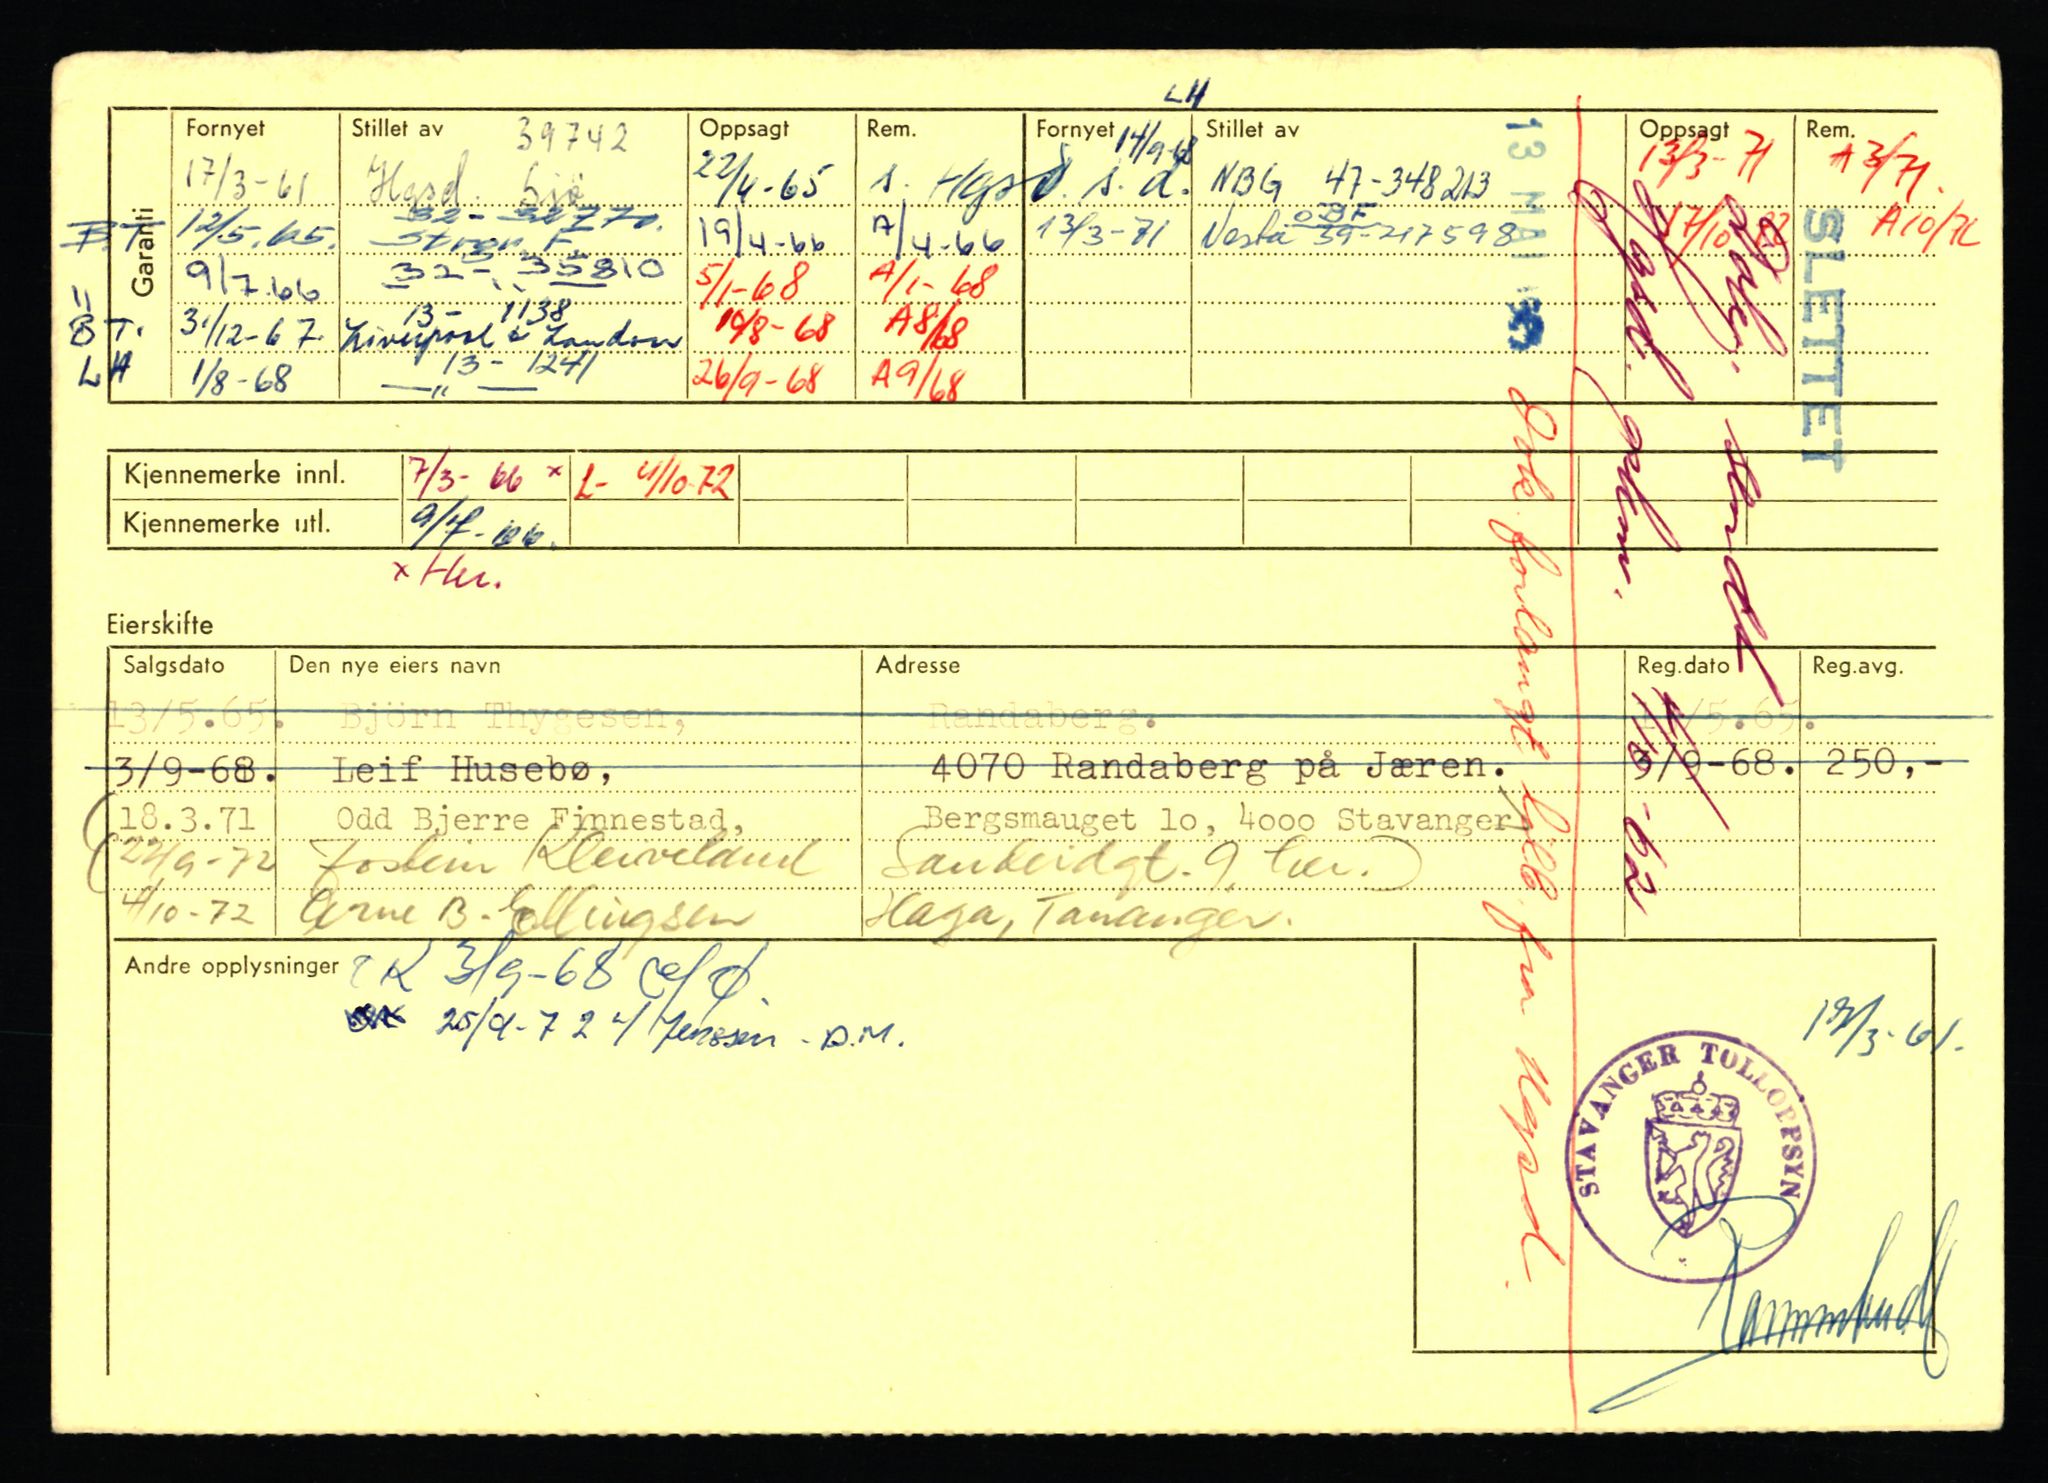 LH
Garanti
Fornyet Stillet av 39742 Oppsagt Rem. Fornyet 14/9-68 Stillet av Oppsagt Rem.
17/3-61 Hgsd. Sjö 22/4-65 s. Hgsd. s.d. NBG 47-348213 13/3-71 A 3/71.
B.T 12/5.65. 32-32770. 19/4-66 A/4-66 13/3-71 Vesta 39-217598 17/10 A10/72
9/7.66 32-35810 5/1-68 A/1-68
B T. 31/12-67. 13-1138 Liverpool & London 19/8-68 A8/68
LH 1/8-68 13-1241 —"— 26/9-68 A9/68
13 MAI
SLETTET
Kjennemerke innl. 7/3-66 x L- 4/10-72
Kjennemerke utl. 9/7-66.
x Her.
Eierskifte
Salgsdato Den nye eiers navn Adresse Reg.dato Reg.avg.
13/5.65. Björn Thygesen, Randaberg. /5.65.
3/9-68. Leif Husebø, 4070 Randaberg på Jæren. 9/9-68. 250,-
18.3.71 Odd Bjerre Finnestad, Bergsmauget 1o, 4ooo Stavanger
22/9-72 Jostein Kleiveland Sandeidgt. 9, her.
4/10-72 Arne B. Ellingsen Haga, Tananger.
Andre opplysninger K 3/9-68
25/9-72 v/ Jenssen - D.M.
Dok. forlangt tilb. fra Hgsd.
17/3-61.
STAVANGER TOLLOPPSYN